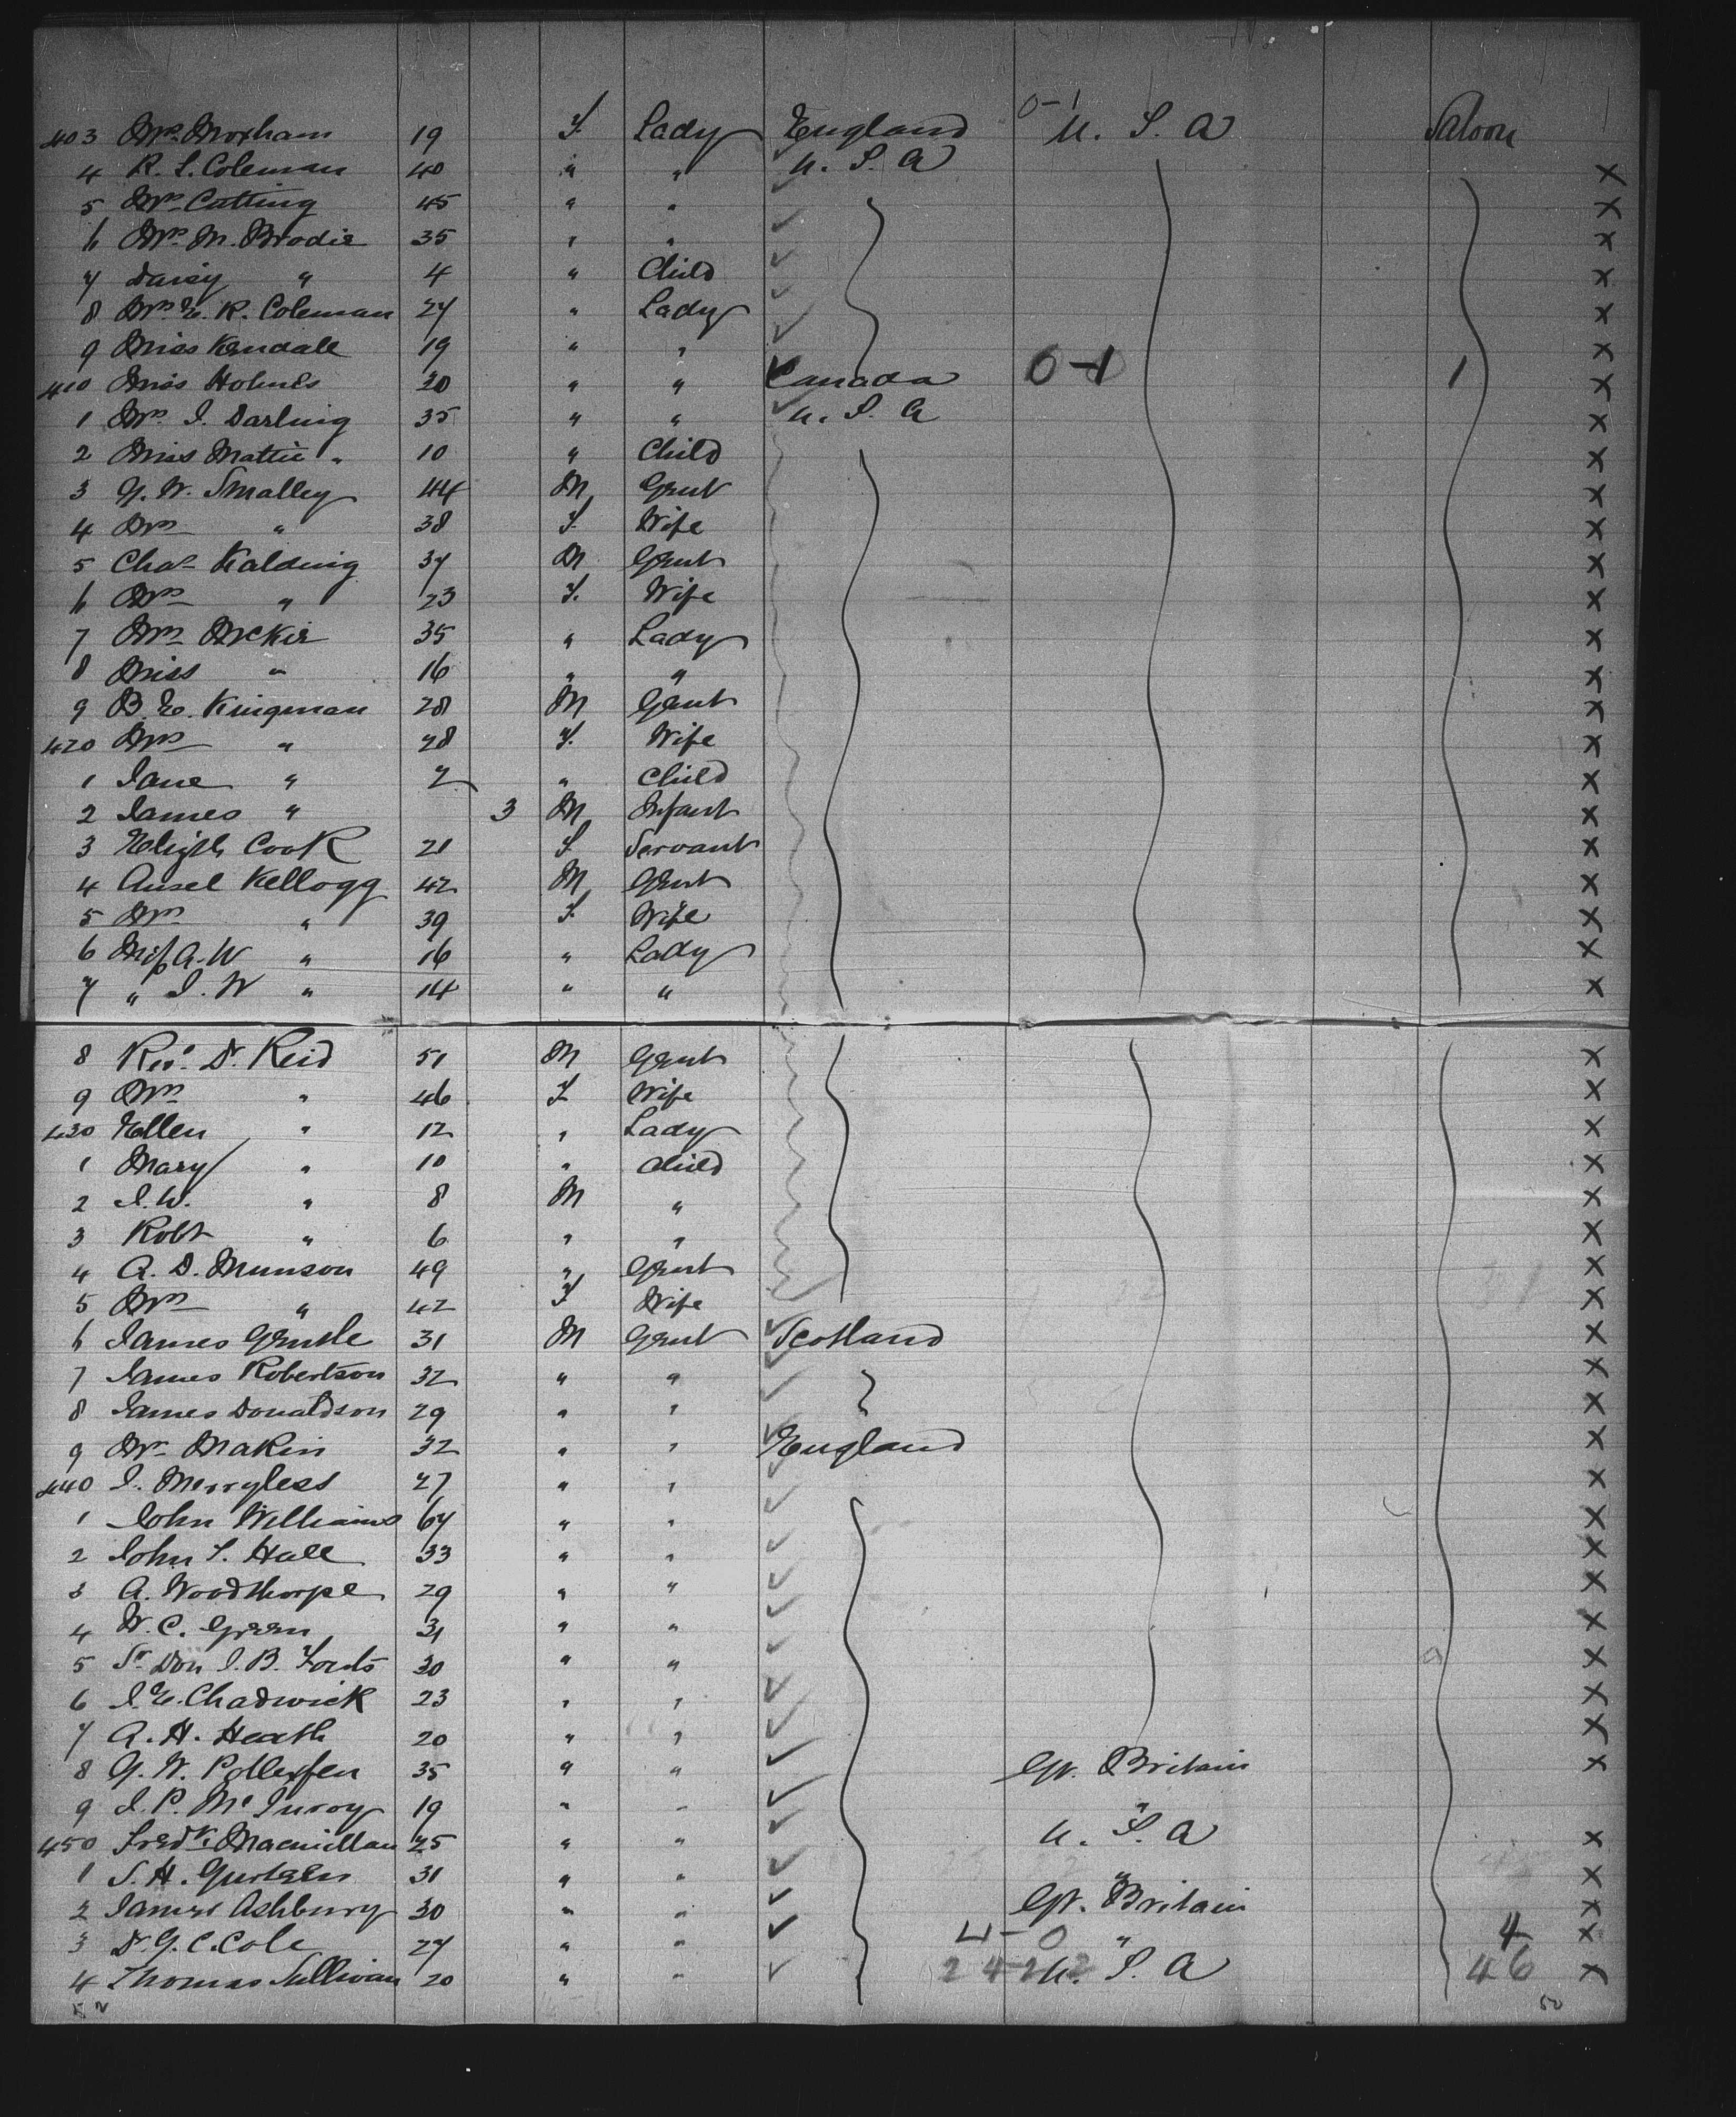 0-1
403 Mrs Moxham 19 F. Lady England U. S. A Saloon
4 R. S. Coleman 40 " " U. S. A x
5 Mrs Cutting 45 " " x
6 Mrs M. Brodie 35 " " x
7 Daisy " 4 " Child x
8 Mrs E. R. Coleman 27 " Lady x
9 Miss Kendall 19 " " x
410 Miss Holmes 30 " " Canada 0-1 1 x
1 Mrs J. Darling 35 " " U. S. A x
2 Miss Mattie " 10 " Child x
3 G. W. Smalley 44 M Gent x
4 Mrs " 38 F. Wife x
5 Chas Kalding 37 M Gent x
6 Mrs " 23 F. Wife x
7 Mrs McKie 35 " Lady x
8 Miss " 16 " " x
9 B. E. Kingman 28 M Gent x
420 Mrs " 28 F. Wife x
1 Jane " 2 " Child x
2 James " 3 M Infant x
3 Elizth Cook 21 F Servant x
4 Ansel Kellogg 42 M Gent x
5 Mrs " 39 F. Wife x
6 Miss A. W " 16 " Lady x
7 " J. W " 14 " " x
8 Revd Dr Reid 51 M Gent x
9 Mrs " 46 F Wife x
430 Ellen " 12 " Lady x
1 Mary " 10 " Child x
2 J. W. " 8 M " x
3 Robt " 6 " " x
4 A. D. Munson 49 " Gent x
5 Mrs " 42 F Wife x
6 James Gentle 31 M Gent Scotland x
7 James Robertson 32 " " x
8 James Donaldson 29 " " x
9 Mr Makin 32 " " England x
440 J. Merryless 27 " " x
1 John Williams 67 " " x
2 John S. Hall 33 " " x
3 A. Woodthorpe 29 " " x
4 W. C. Green 31 " " x
5 Sr Don J. B. 30 " " x
6 J. E. Chadwick 23 " " x
7 A. H. Heath 20 " " x
8 G. W. Pollexfen 35 " " Gt. Britain x
9 J. P. McInroy 19 " " "
450 Fredk. Macmillan 25 " " U. S. A x
1 S. H. 31 " " " x
2 James Ashbury 30 " " Gt. Britain x
3 Dr G. C. Cole 27 " " 4-0 " 4 x
4 Thomas Sullivan 20 " " U. S. A 46 x
52 50